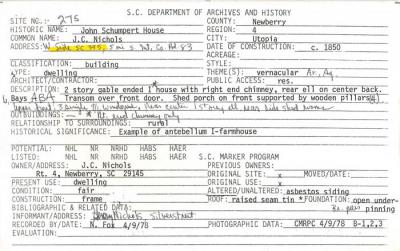 S.C. DEPARTMENT OF ARCHIVES AND HISTORY
SITE NO.: 275 COUNTY: Newberry
HISTORIC NAME: John Schumpert House REGION: 4
COMMON NAME: J.C. Nichols CITY: Utopia
ADDRESS: W side SC 395, 5 mi S. Jct. Co. Rd 83 DATE OF CONSTRUCTION: c. 1850
ACREAGE:
CLASSIFICATION: building STYLE:
TYPE: dwelling THEME(S): vernacular Ar., Ag.
ARCHITECT/CONTRACTOR: PUBLIC ACCESS: res.
DESCRIPTION: 2 story gable ended I house with right end chimney, rear ell on center back.
6 Bays ABA Transom over front door. Shed porch on front supported by wooden pillars (4)
OUTBUILDINGS: end chimney only
RELATIONSHIP TO SURROUNDINGS: rural
HISTORICAL SIGNIFICANCE: Example of antebellum I-farmhouse
POTENTIAL: NHL NR NRHD HABS HAER
LISTED: NHL NR NRHD HABS HAER S.C. MARKER PROGRAM
OWNER/ADDRESS: J.C. Nichols PREVIOUS OWNERS:
Rt. 4, Newberry, SC 29145 ORIGINAL SITE: x MOVED/DATE:
PRESENT USE: dwelling ORIGINAL USE:
CONDITION: fair ALTERED/UNALTERED: asbestos siding
CONSTRUCTION: frame ROOF: raised seam tin * FOUNDATION: open under-
BIBLIOGRAPHIC & RELATED DATA: pinning
INFORMANT/ADDRESS: Nichols
RECORDED BY/DATE: N. Fox 4/9/78 PHOTOGRAPHIC DATA: CMRPC 4/9/78 B-1,2,3